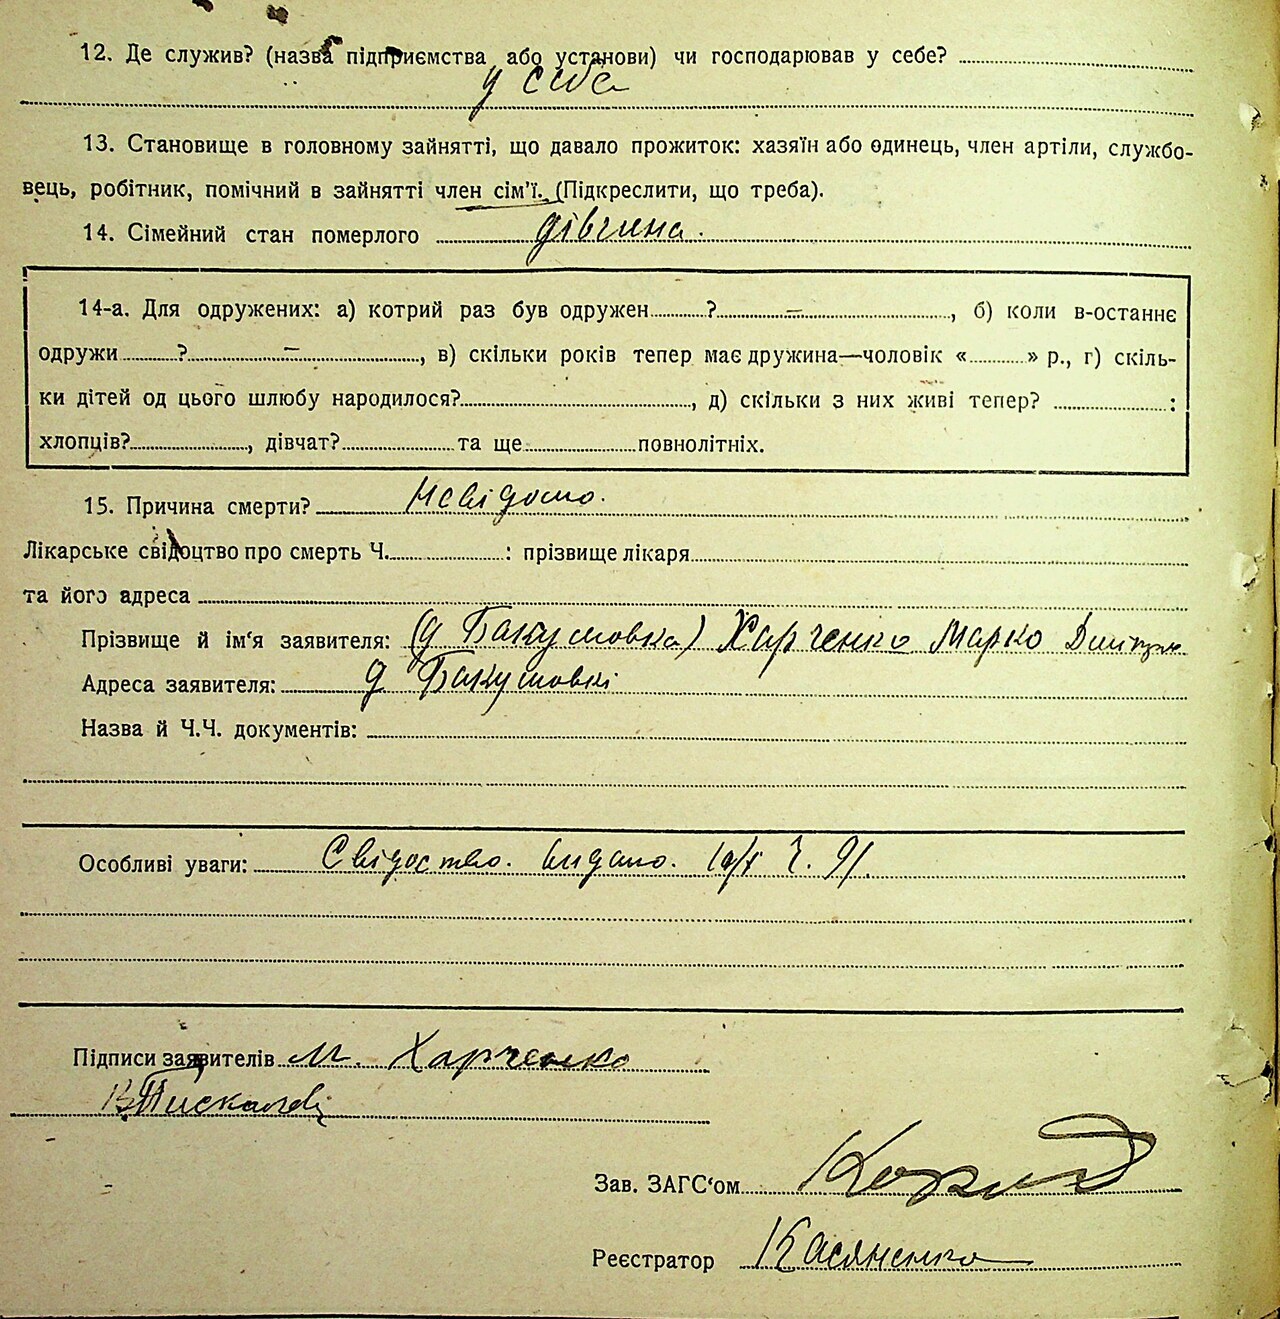 12. Де служив? (назва підприємства або установи) чи господарював у себе?
у себе
13. Становище в головному зайнятті, що давало прожиток: хазяїн або одинець, член артіли, службо-
вець, робітник, помічний в зайнятті член сім'ї. (Підкреслити, що треба).
14. Сімейний стан померлого дівчина.
14-а. Для одружених: а) котрий раз був одружен ? —, б) коли в-останнє
одружи ? —, в) скільки років тепер має дружина—чоловік « » р., г) скіль-
ки дітей од цього шлюбу народилося? , д) скільки з них живі тепер? :
хлопців? , дівчат? та ще повнолітніх.
15. Причина смерти? Невідомо.
Лікарське свідоцтво про смерть Ч. : прізвище лікаря
та його адреса
Прізвище й ім'я заявителя: Харченко Марко
Адреса заявителя:
Назва й Ч.Ч. документів:
Особливі уваги: Свідоство. видано. Ч. 91.
Підписи заявителів М. Харченко
Зав. ЗАГС'ом
Реєстратор Касяненко